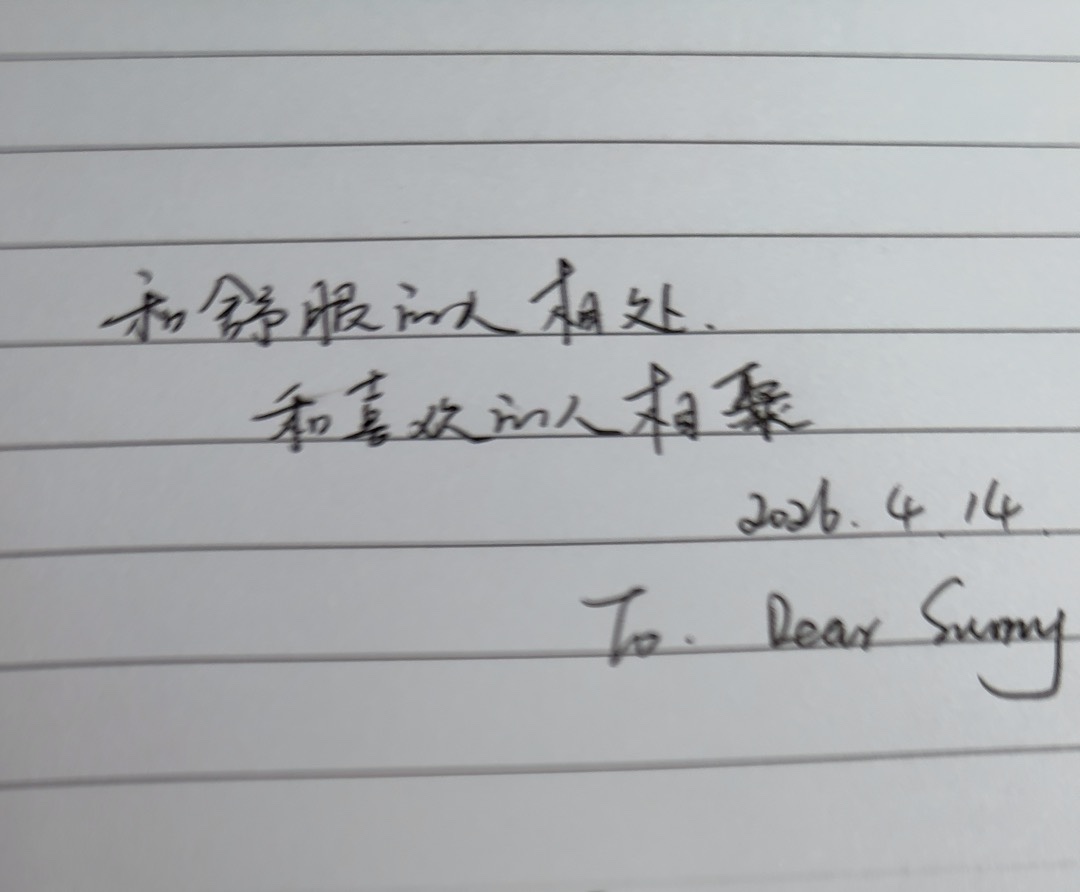 和舒服的人相处.
和喜欢的人相聚
2026.4.14.
To. Dear Sunny